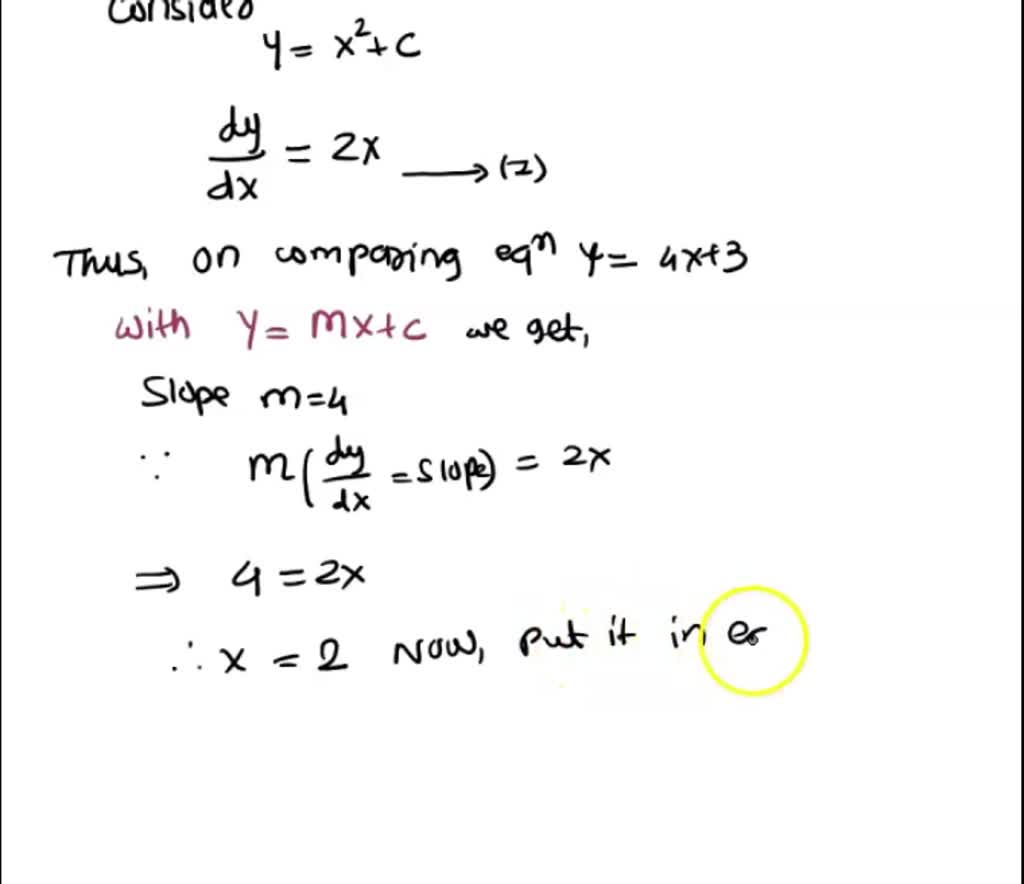 Consider
y = x²+c
dy/dx = 2x ⟶ (2)
Thus, on comparing eqⁿ y = 4x+3
with y = mx+c we get,
Slope m=4
∵ m (dy/dx = slope) = 2x
⇒ 4 = 2x
∴ x = 2 Now, put it in